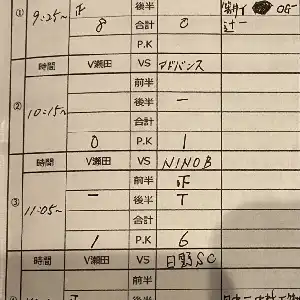 ① 9:25~ 正 後半 OG一
8 合計 0 辻一
P.K
時間 V瀬田 VS アドバンス
前半
② 10:15~ 後半 一
合計
0 P.K 1
時間 V瀬田 VS NINOB
前半 正
③ 11:05~ 一 後半 T
合計
1 P.K 6
時間 V瀬田 VS 日野SC
前半
正